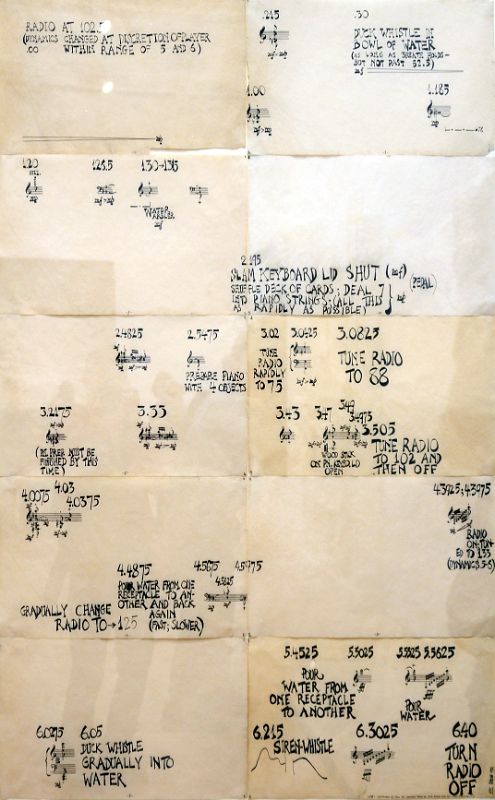 RADIO AT 102.5
(DYNAMICS CHANGED AT DISCRETION OF PLAYER
.00 WITHIN RANGE OF 5 AND 6)
.215 .30
DUCK WHISTLE IN
BOWL OF WATER
(AS LONG AS BREATH HOLDS-
BUT NOT PAST 52.5)
1.00 1.185
1.20 1.26.5 1.30→1.315
WATER
WARBLER
2.195
SLAM KEYBOARD LID SHUT
SHUFFLE DECK OF CARDS; DEAL 7
INTO PIANO STRINGS. (ALL THIS
AS RAPIDLY AS POSSIBLE)
(PEDAL)
2.4825 2.5475
PREPARE PIANO
WITH 4 OBJECTS
3.02 3.0425 3.0825
TUNE
RADIO
RAPIDLY
TO 75
TUNE RADIO
TO 88
3.2175 3.33
(PI. PREP. MUST BE
FINISHED BY THIS
TIME)
3.43 3.47 3.49
3.4975
3.505
WOOD STICK
OPEN
TUNE RADIO
TO 102 AND
THEN OFF
4.0075 4.03
4.0375
4.4875 4.5675 4.5975
4.5825
POUR WATER FROM ONE
RECEPTACLE TO AN-
OTHER AND BACK
AGAIN
(FAST; SLOWER)
GRADUALLY CHANGE
RADIO TO→125
4.3925; 4.3975
RADIO
ON-TUN-
ED TO 133
(DYNAMICS 5-6)
6.0275 6.05
DUCK WHISTLE
GRADUALLY INTO
WATER
5.4525 5.5025 5.5525 5.5825
POUR
WATER FROM
ONE RECEPTACLE
TO ANOTHER
POUR
WATER
6.215 6.3025 6.40
SIREN-WHISTLE
TURN
RADIO
OFF